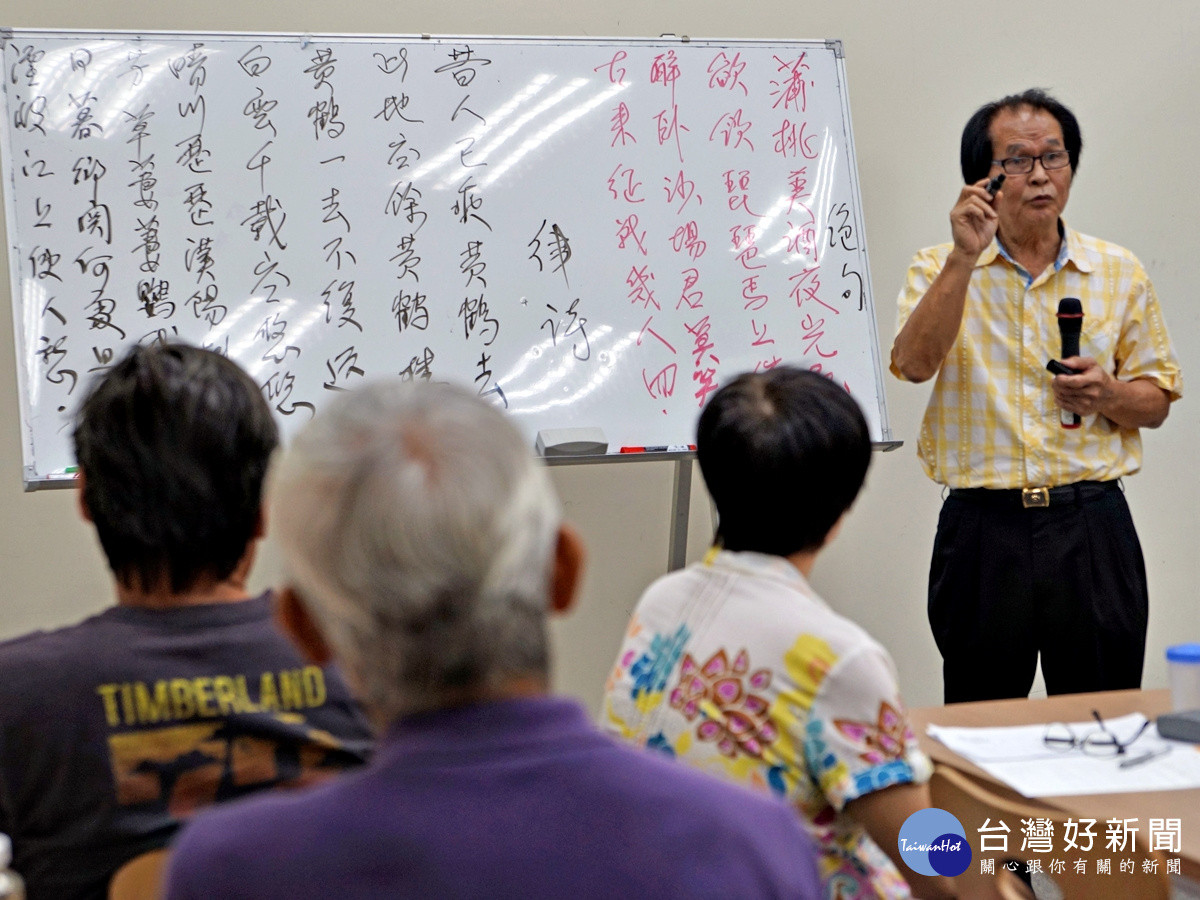 絕句
蒲桃美酒夜光
欲飲琵琶馬上催
醉臥沙場君莫笑
古來征戰幾人回.
律詩
昔人已乘黃鶴去
此地空餘黃鶴樓
黃鶴一去不復返
白雲千載空悠悠
晴川歷歷漢陽
芳草萋萋鸚
日暮鄉關何處是
煙波江上使人愁.
TIMBERLAND
TaiwanHot
台灣好新聞
關心跟你有關的新聞